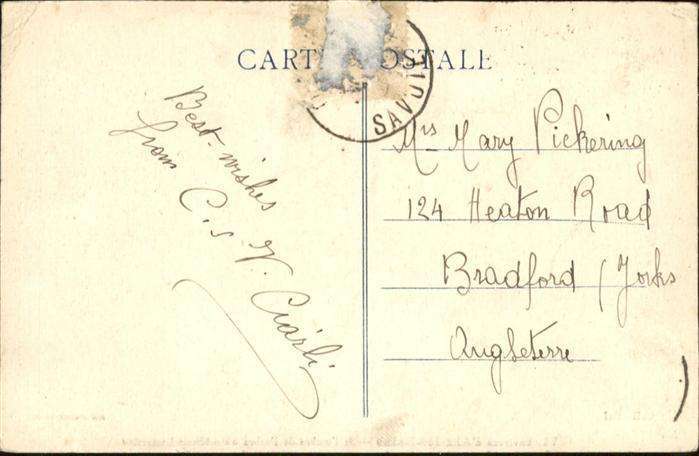 CARTE POSTALE
SAVOIE
Best wishes
from
Mrs Mary Pickering
124 Heaton Road
Bradford (Yorks
Angleterre
)